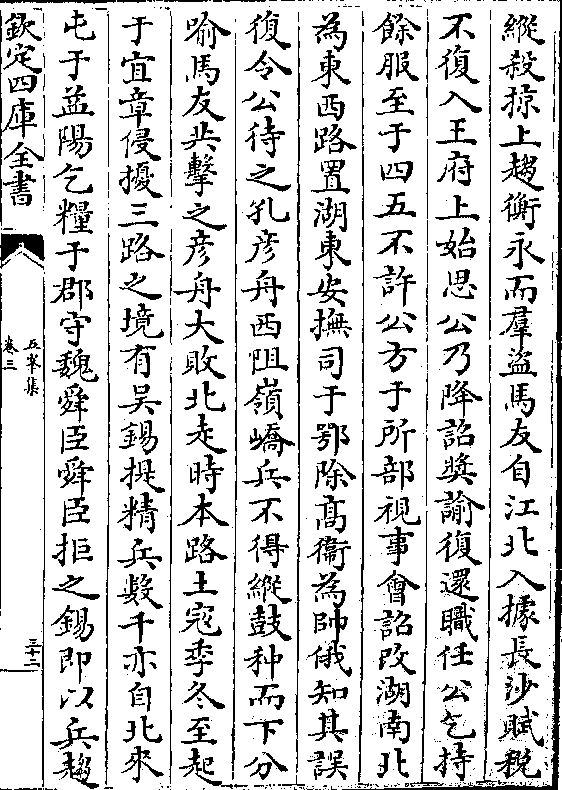 縱殺掠上趨衡永而羣盜馬友自江北入據長沙賦稅
不復入王府上始思公乃降詔奬諭復還職任公乞持
餘服至于四五不許公方于所部視事會詔改湖南北
為東西路置湖東安撫司于鄂除髙衞為帥俄知其誤
復令公待之孔彦舟西阻嶺嶠兵不得縱鼓枻而下分
喻馬友共擊之彦舟大敗北走時本路土宼李冬至起
于宜章侵擾三路之境有吴錫提精兵數千亦自北來
屯于益陽乞糧于郡守魏舜臣舜臣拒之錫即以兵趨
欽定四庫全書
五峯集
卷三
三十二